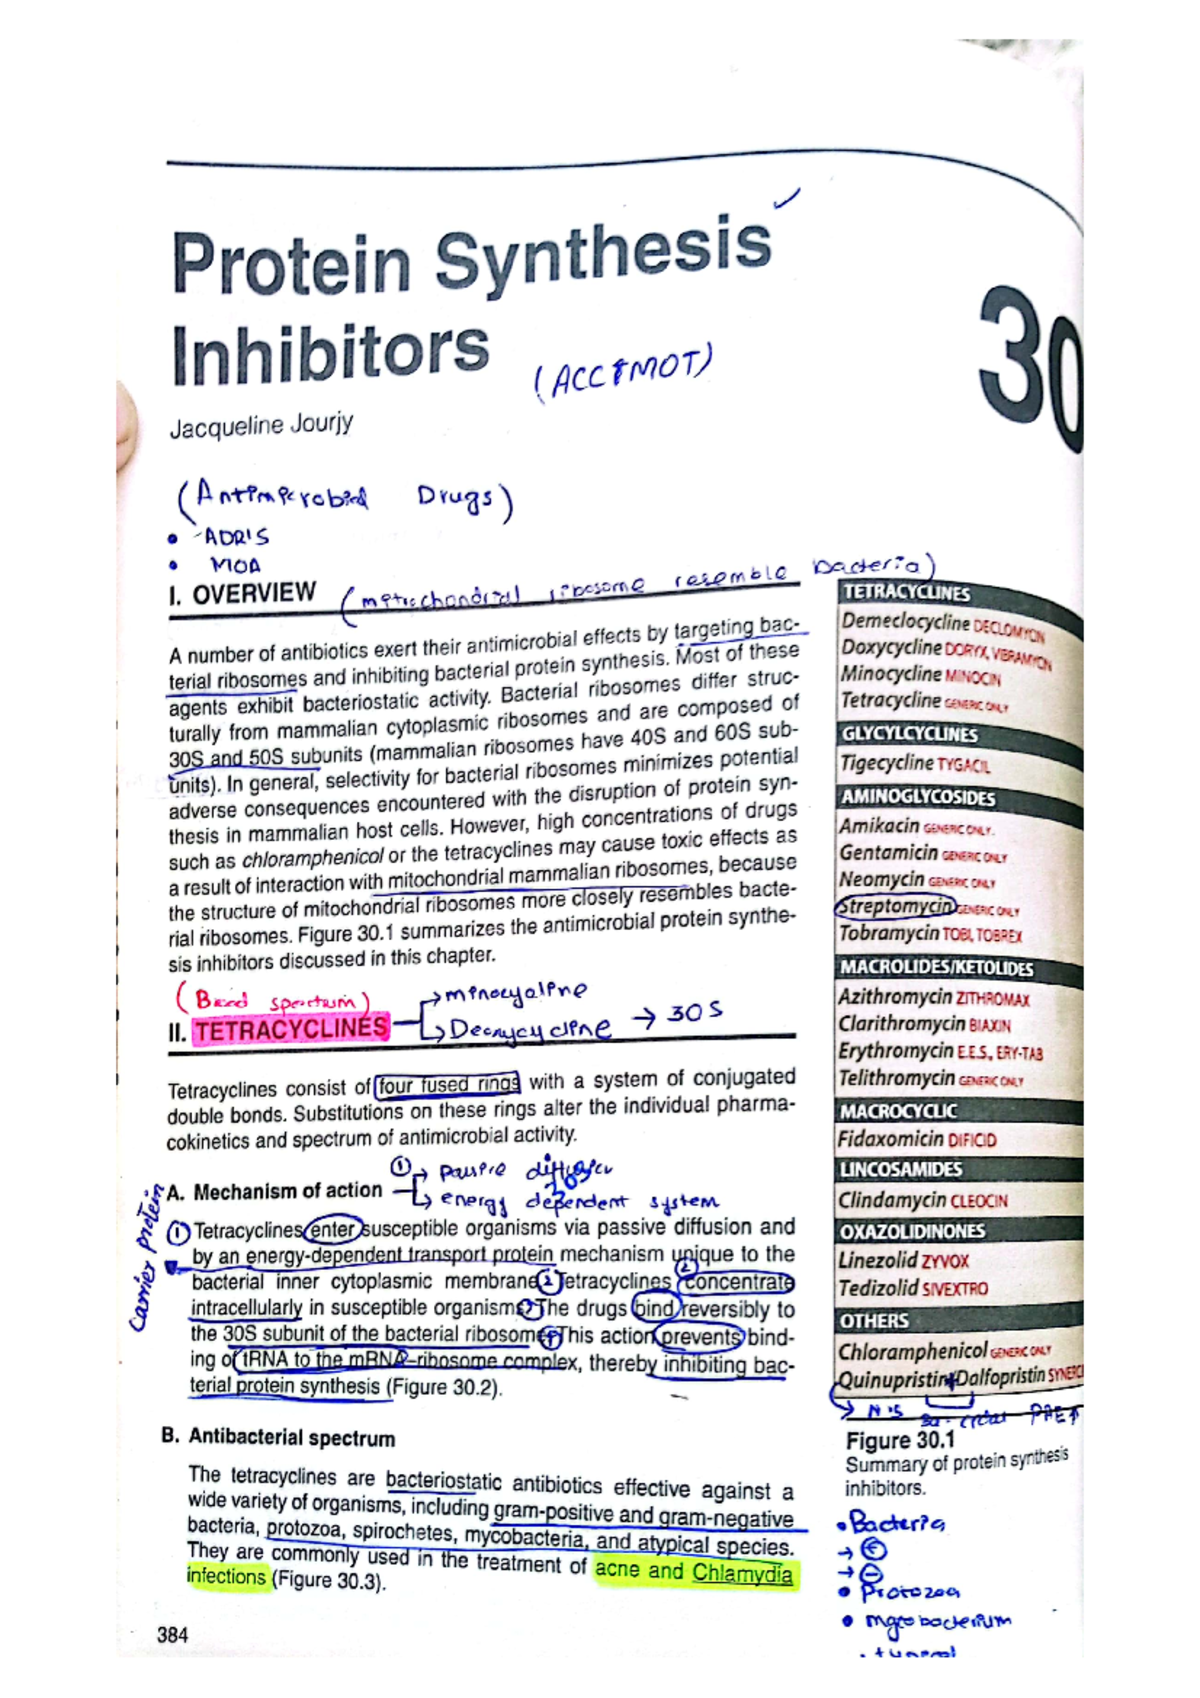 Protein Synthesis
Inhibitors
30
(ACCTMOT)
Jacqueline Jourjy
(Antimicrobial Drugs)
• ADR's
• MOA
I. OVERVIEW
(mitochondrial ribosome resemble bacteria)
A number of antibiotics exert their antimicrobial effects by targeting bac-
terial ribosomes and inhibiting bacterial protein synthesis. Most of these
agents exhibit bacteriostatic activity. Bacterial ribosomes differ struc-
turally from mammalian cytoplasmic ribosomes and are composed of
30S and 50S subunits (mammalian ribosomes have 40S and 60S sub-
units). In general, selectivity for bacterial ribosomes minimizes potential
adverse consequences encountered with the disruption of protein syn-
thesis in mammalian host cells. However, high concentrations of drugs
such as chloramphenicol or the tetracyclines may cause toxic effects as
a result of interaction with mitochondrial mammalian ribosomes, because
the structure of mitochondrial ribosomes more closely resembles bacte-
rial ribosomes. Figure 30.1 summarizes the antimicrobial protein synthe-
sis inhibitors discussed in this chapter.
→ minocycline
II. TETRACYCLINES
→ 30S
Tetracyclines consist of four fused rings with a system of conjugated
double bonds. Substitutions on these rings alter the individual pharma-
cokinetics and spectrum of antimicrobial activity.
① → passive diffusion
A. Mechanism of action
→ energy dependent system
carrier protein
① Tetracyclines enter susceptible organisms via passive diffusion and
by an energy-dependent transport protein mechanism unique to the
bacterial inner cytoplasmic membrane. ② Tetracyclines concentrate
intracellularly in susceptible organisms. The drugs bind reversibly to
the 30S subunit of the bacterial ribosome. This action prevents bind-
ing of tRNA to the mRNA–ribosome complex, thereby inhibiting bac-
terial protein synthesis (Figure 30.2).
B. Antibacterial spectrum
The tetracyclines are bacteriostatic antibiotics effective against a
wide variety of organisms, including gram-positive and gram-negative
bacteria, protozoa, spirochetes, mycobacteria, and atypical species.
They are commonly used in the treatment of acne and Chlamydia
infections (Figure 30.3).
384
TETRACYCLINES
Demeclocycline DECLOMYCIN
Doxycycline DORYX, VIBRAMYCIN
Minocycline MINOCIN
Tetracycline GENERIC ONLY
GLYCYLCYCLINES
Tigecycline TYGACIL
AMINOGLYCOSIDES
Amikacin GENERIC ONLY
Gentamicin GENERIC ONLY
Neomycin GENERIC ONLY
Streptomycin GENERIC ONLY
Tobramycin TOBI, TOBREX
MACROLIDES/KETOLIDES
Azithromycin ZITHROMAX
Clarithromycin BIAXIN
Erythromycin E.E.S., ERY-TAB
Telithromycin GENERIC ONLY
MACROCYCLIC
Fidaxomicin DIFICID
LINCOSAMIDES
Clindamycin CLEOCIN
OXAZOLIDINONES
Linezolid ZYVOX
Tedizolid SIVEXTRO
OTHERS
Chloramphenicol GENERIC ONLY
Quinupristin+Dalfopristin SYNERC
PAE↑
Figure 30.1
Summary of protein synthesis
inhibitors.
• Bacteria
→ ⊕
→ ⊖
• Protozoa
• mycobacterium